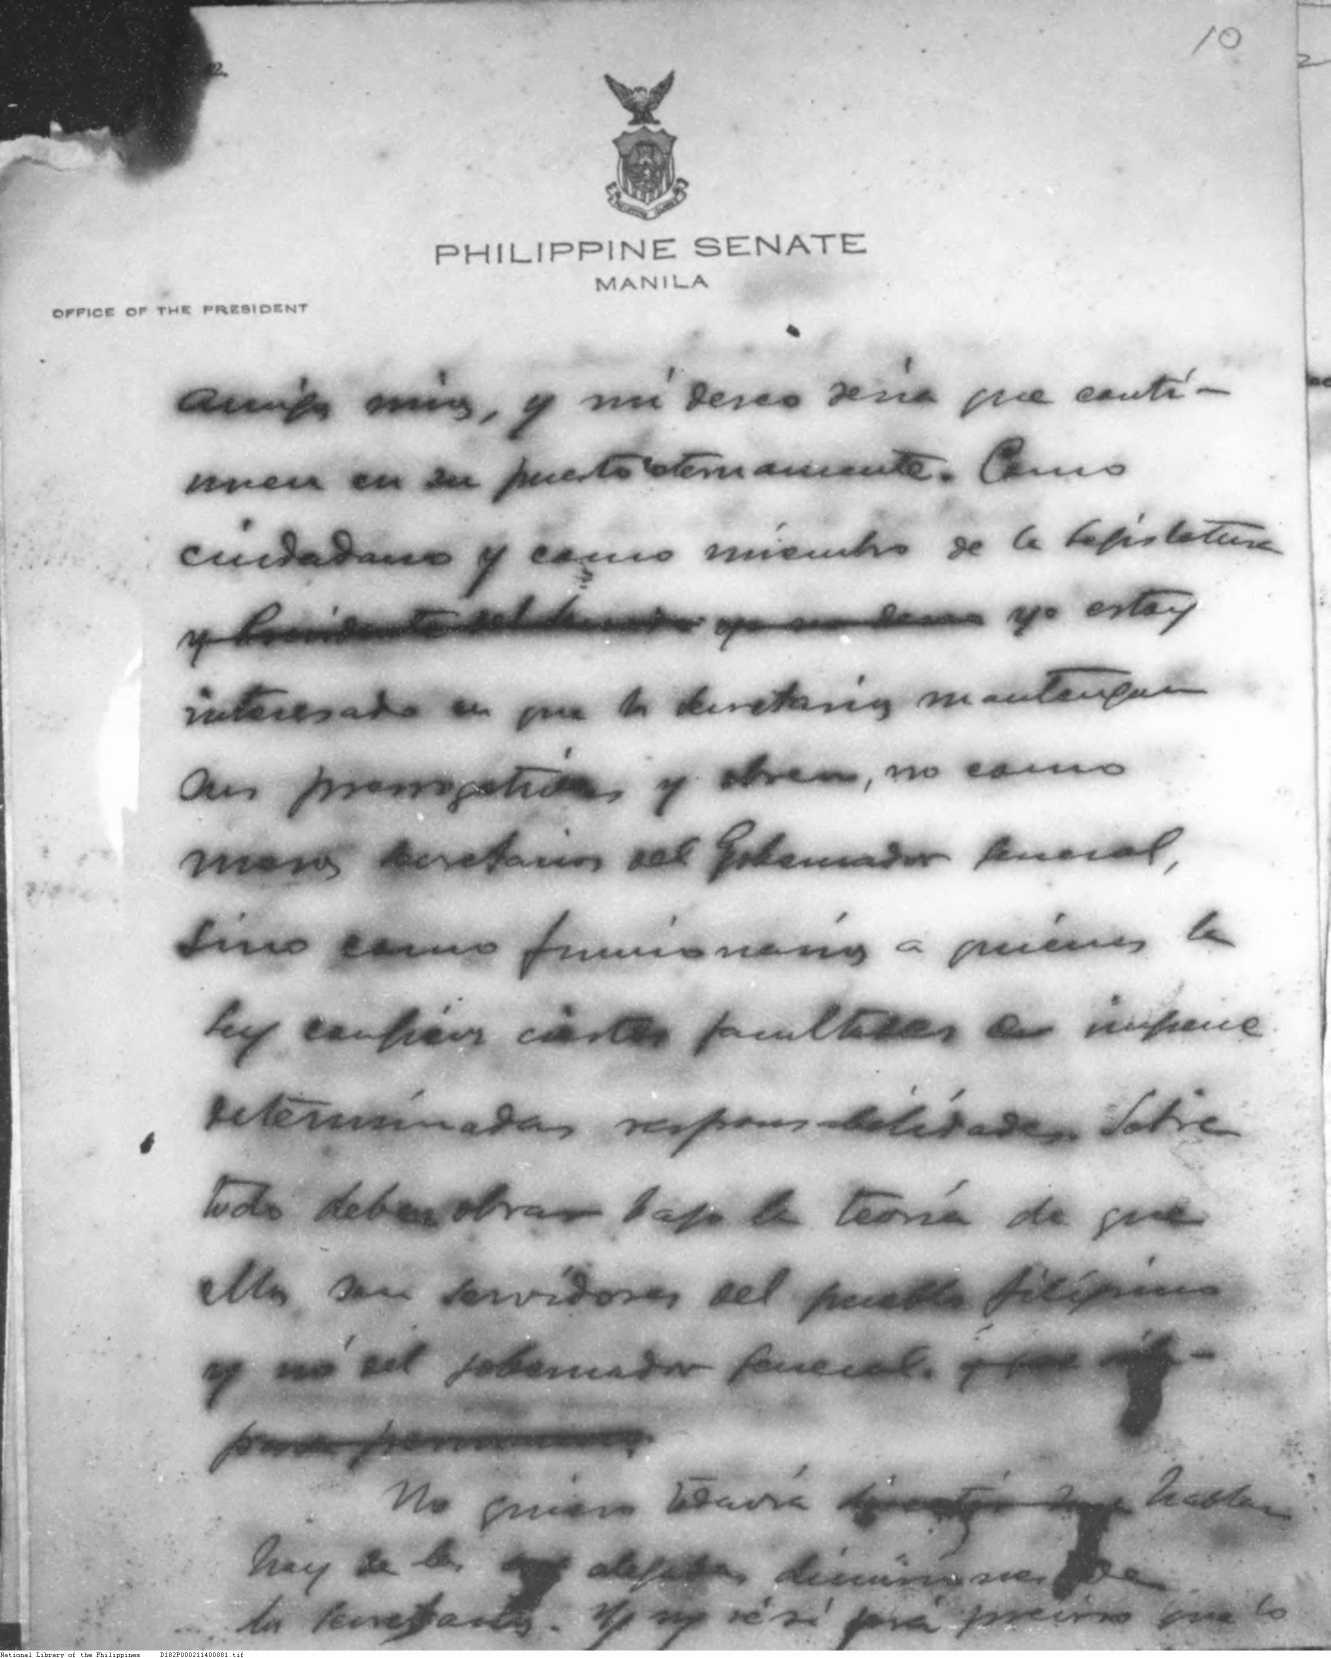 10
PHILIPPINE SENATE
MANILA
OFFICE OF THE PRESIDENT
amigos mios, y mi deseo sería que conti-
nuen en su puesto eternamente. Como
ciudadano y como miembro de la legislatura
y Presidente del Senado yo estoy
interesado en que los Secretarios mantengan
sus prerrogativas y obren, no como
meros secretarios del Gobernador General,
sino como funcionarios a quienes la
ley confiere ciertas facultades e impone
determinadas responsabilidades. Sobre
todo deben obrar bajo la teoría de que
ellos son servidores del pueblo filipino
y no del gobernador general.
No quiero todavía hablar
hoy de las dimisiones de
los Secretarios. Yo no sé si será preciso que lo
National Library of the Philippines D182P000211400081.tif